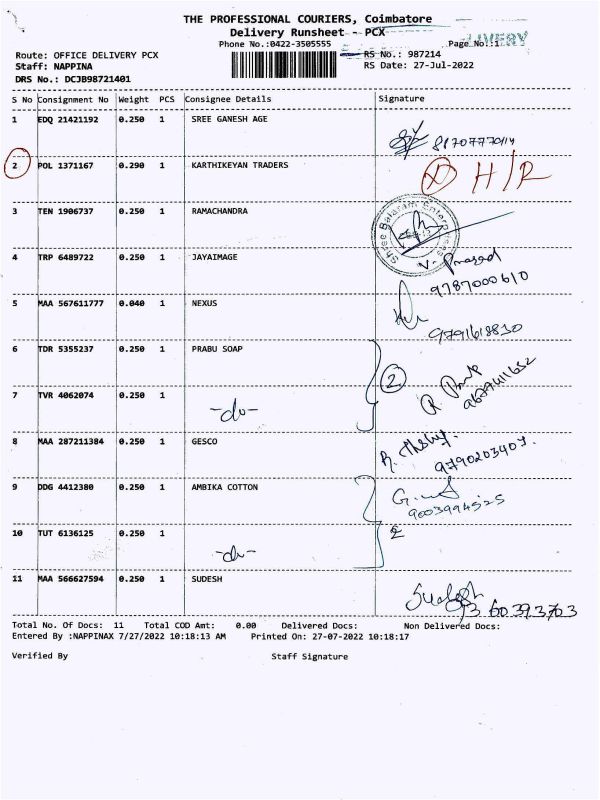 THE PROFESSIONAL COURIERS, Coimbatore
Delivery Runsheet - PCX
Phone No.:0422-3505555 Page No.:1
Route: OFFICE DELIVERY PCX RS No.: 987214
Staff: NAPPINA RS Date: 27-Jul-2022
DRS No.: DCJB98721401
S No Consignment No Weight PCS Consignee Details Signature
1 EDQ 21421192 0.250 1 SREE GANESH AGE
2 POL 1371167 0.290 1 KARTHIKEYAN TRADERS H/R
3 TEN 1906737 0.250 1 RAMACHANDRA
Shree Balaram Enterprises
4 TRP 6489722 0.250 1 JAYAIMAGE V. Prasad
9787000610
5 MAA 567611777 0.040 1 NEXUS
9791618830
6 TDR 5355237 0.250 1 PRABU SOAP 2
7 TVR 4062074 0.250 1 -do-
8 MAA 287211384 0.250 1 GESCO
9790203407.
9 DDG 4412380 0.250 1 AMBIKA COTTON
9003994525
10 TUT 6136125 0.250 1 -do- 2
11 MAA 566627594 0.250 1 SUDESH Sudesh
Total No. Of Docs: 11 Total COD Amt: 0.00 Delivered Docs: Non Delivered Docs:
Entered By :NAPPINAX 7/27/2022 10:18:13 AM Printed On: 27-07-2022 10:18:17
Verified By Staff Signature